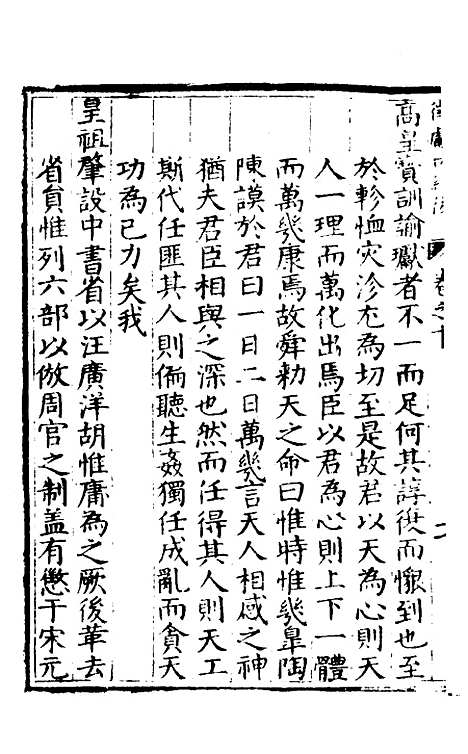 卷之十
高皇寳訓諭獻者不一而足何其諄復而懷到也至
於軫恤灾沴尤為切至是故君以天為心則天
人一理而萬化出焉臣以君為心則上下一體
而萬幾康焉故舜勑天之命曰惟時惟幾臯陶
陳謨於君曰一日二日萬幾言天人相感之神
猶夫君臣相與之深也然而任得其人則天工
斯代任匪其人則偏聽生姦獨任成亂而貪天
功為已力矣我
皇祖肇設中書省以汪廣洋胡惟庸為之厥後革去
省負惟列六部以倣周官之制盖有懲于宋元